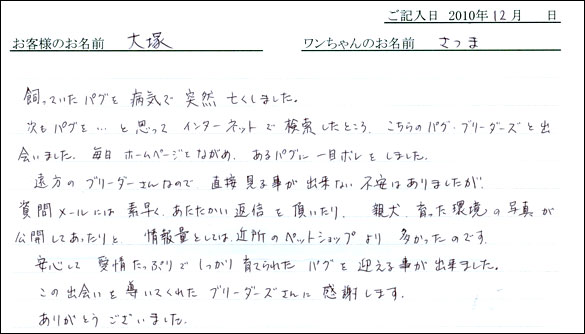 ご記入日 2010年12月 日
お客様のお名前 大塚 ワンちゃんのお名前 さつま
飼っていたパグを病気で突然亡くしました。
次もパグを…と思ってインターネットで検索したところ、こちらのパグ・ブリーダーズと出
会いました。毎日ホームページをながめ、あるパグに一目ボレをしました。
遠方のブリーダーさんなので、直接見る事が出来ない不安はありましたが、
質問メールには素早く、あたたかい返信を頂いたり、親犬、育った環境の写真が
公開してあったりと、情報量としては、近所のペットショップより多かったのです。
安心して愛情たっぷりでしっかり育てられたパグを迎える事が出来ました。
この出会いを導いてくれたブリーダーズさんに感謝します。
ありがとうございました。